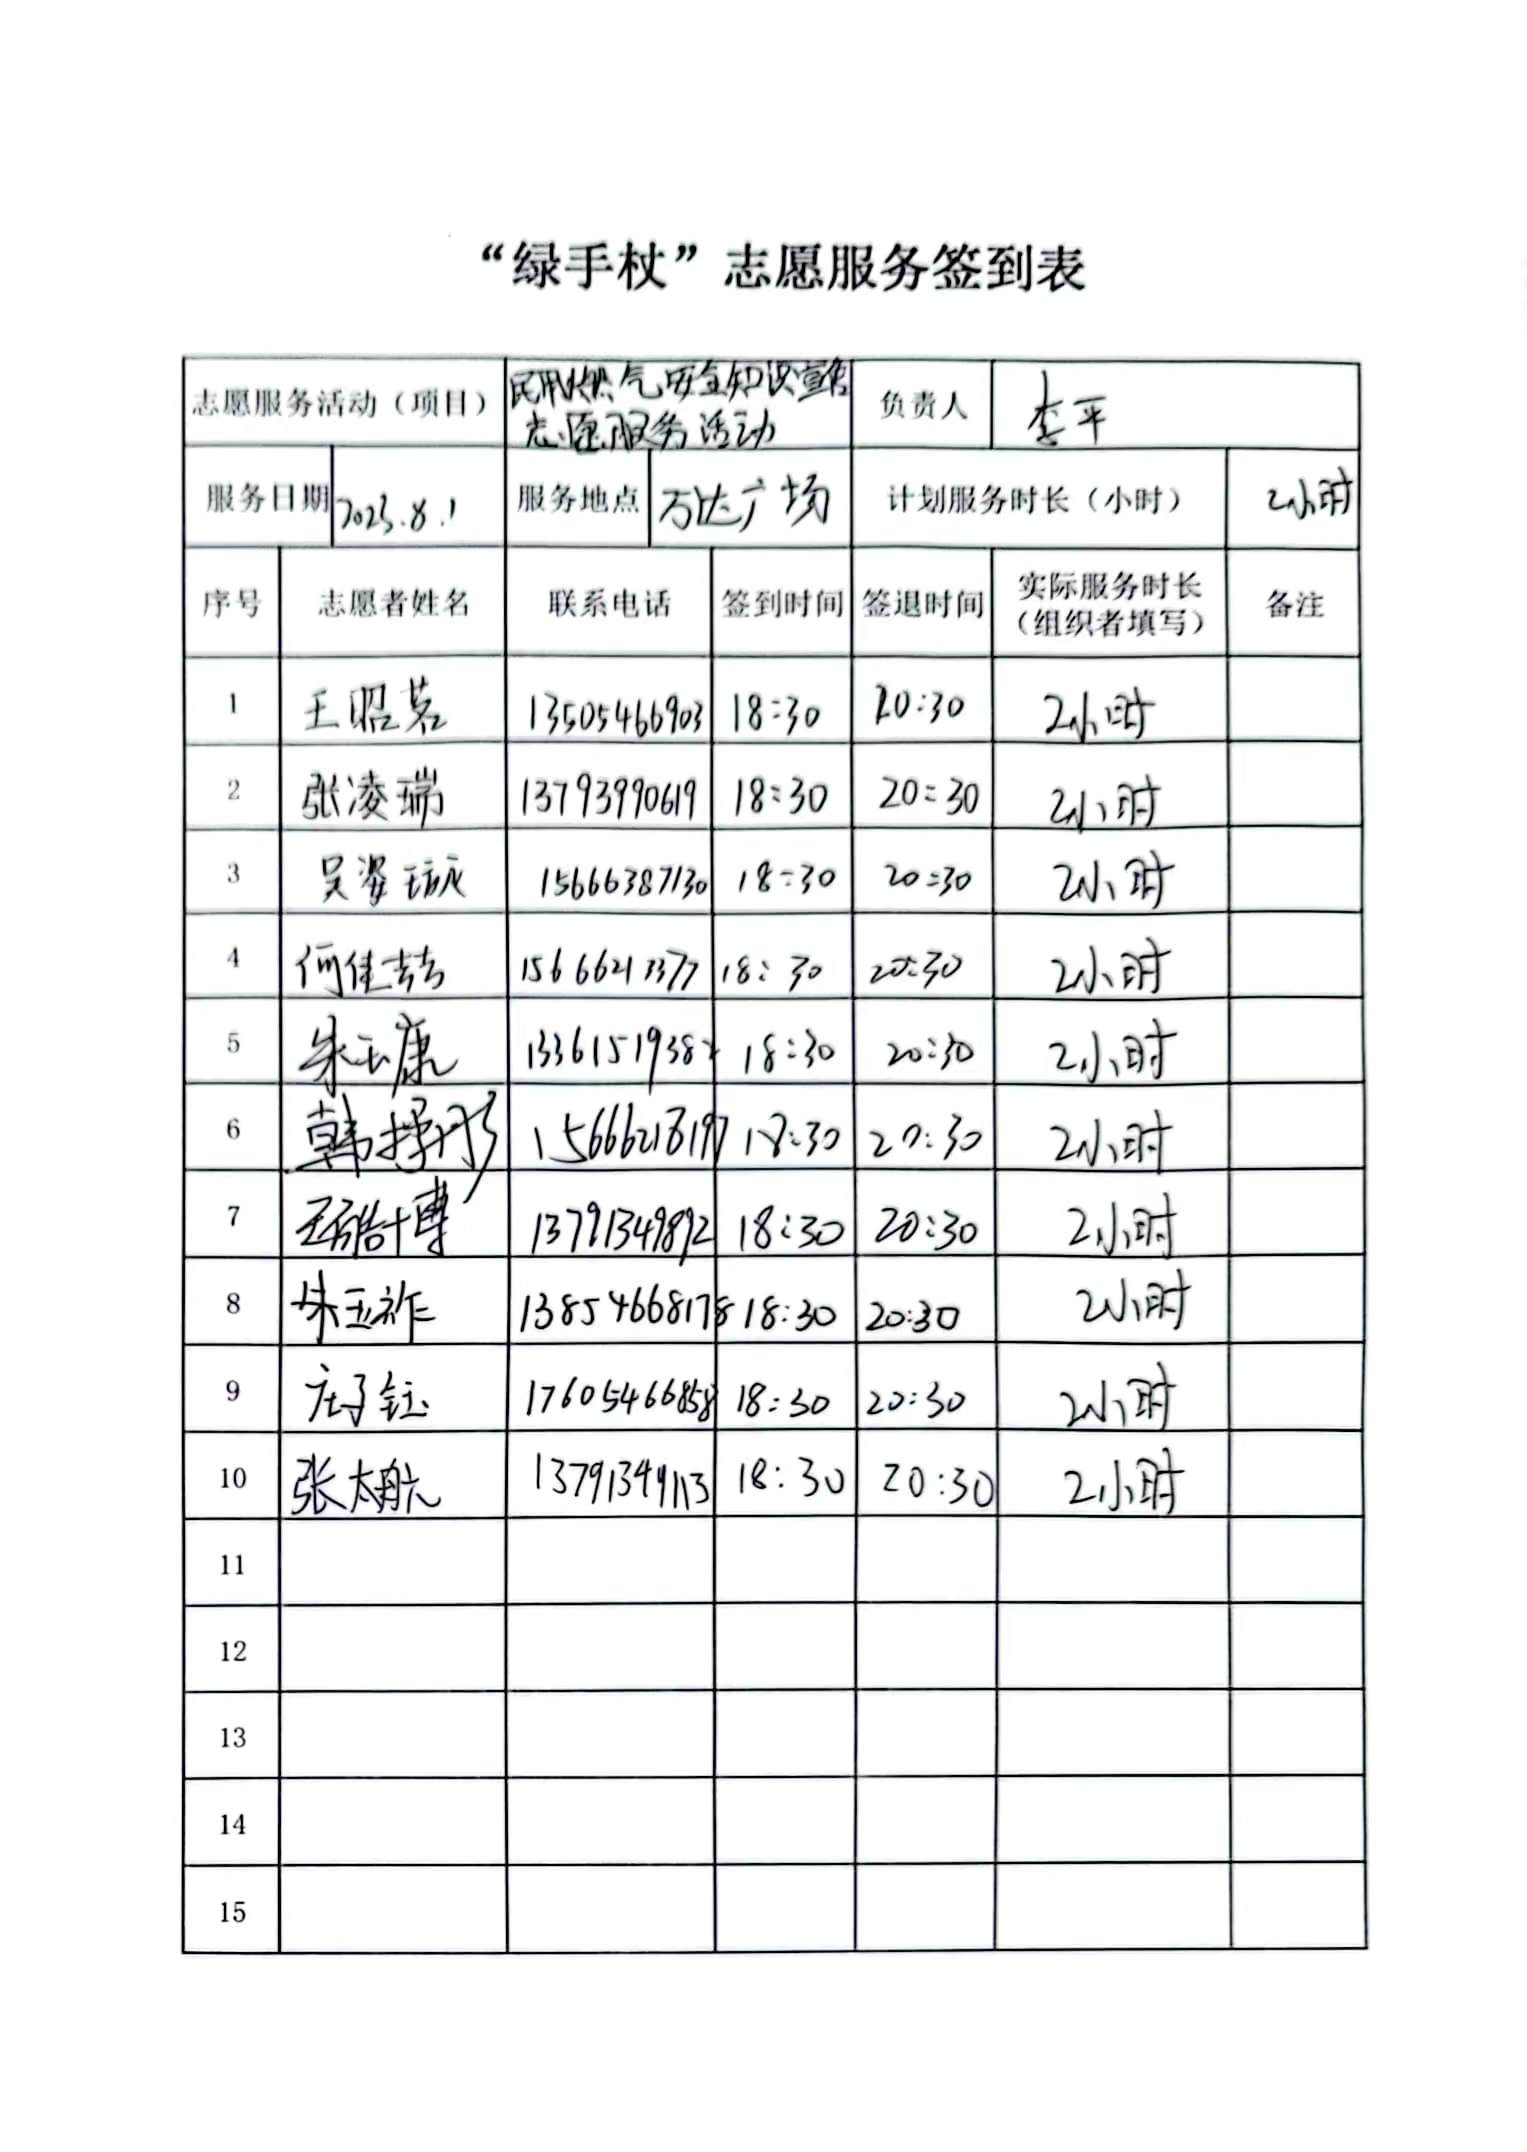 “绿手杖”志愿服务签到表
志愿服务活动（项目） 民用燃气安全知识宣传 负责人 李平
志愿服务活动
服务日期 2023.8.1 服务地点 万达广场 计划服务时长（小时） 2小时
序号 志愿者姓名 联系电话 签到时间 签退时间 实际服务时长 备注
（组织者填写）
1 王昭茗 13505466903 18:30 20:30 2小时
2 张凌瑞 13793990619 18:30 20:30 2小时
3 吴姿璇 15666387130 18:30 20:30 2小时
4 何佳喆 15666213377 18:30 20:30 2小时
5 朱玉康 18:30 20:30 2小时
6 15666218197 18:30 20:30 2小时
7 13791349892 18:30 20:30 2小时
8 朱玉祚 13854668178 18:30 20:30 2小时
9 庄子钰 17605466858 18:30 20:30 2小时
10 张太航 13791349113 18:30 20:30 2小时
11
12
13
14
15